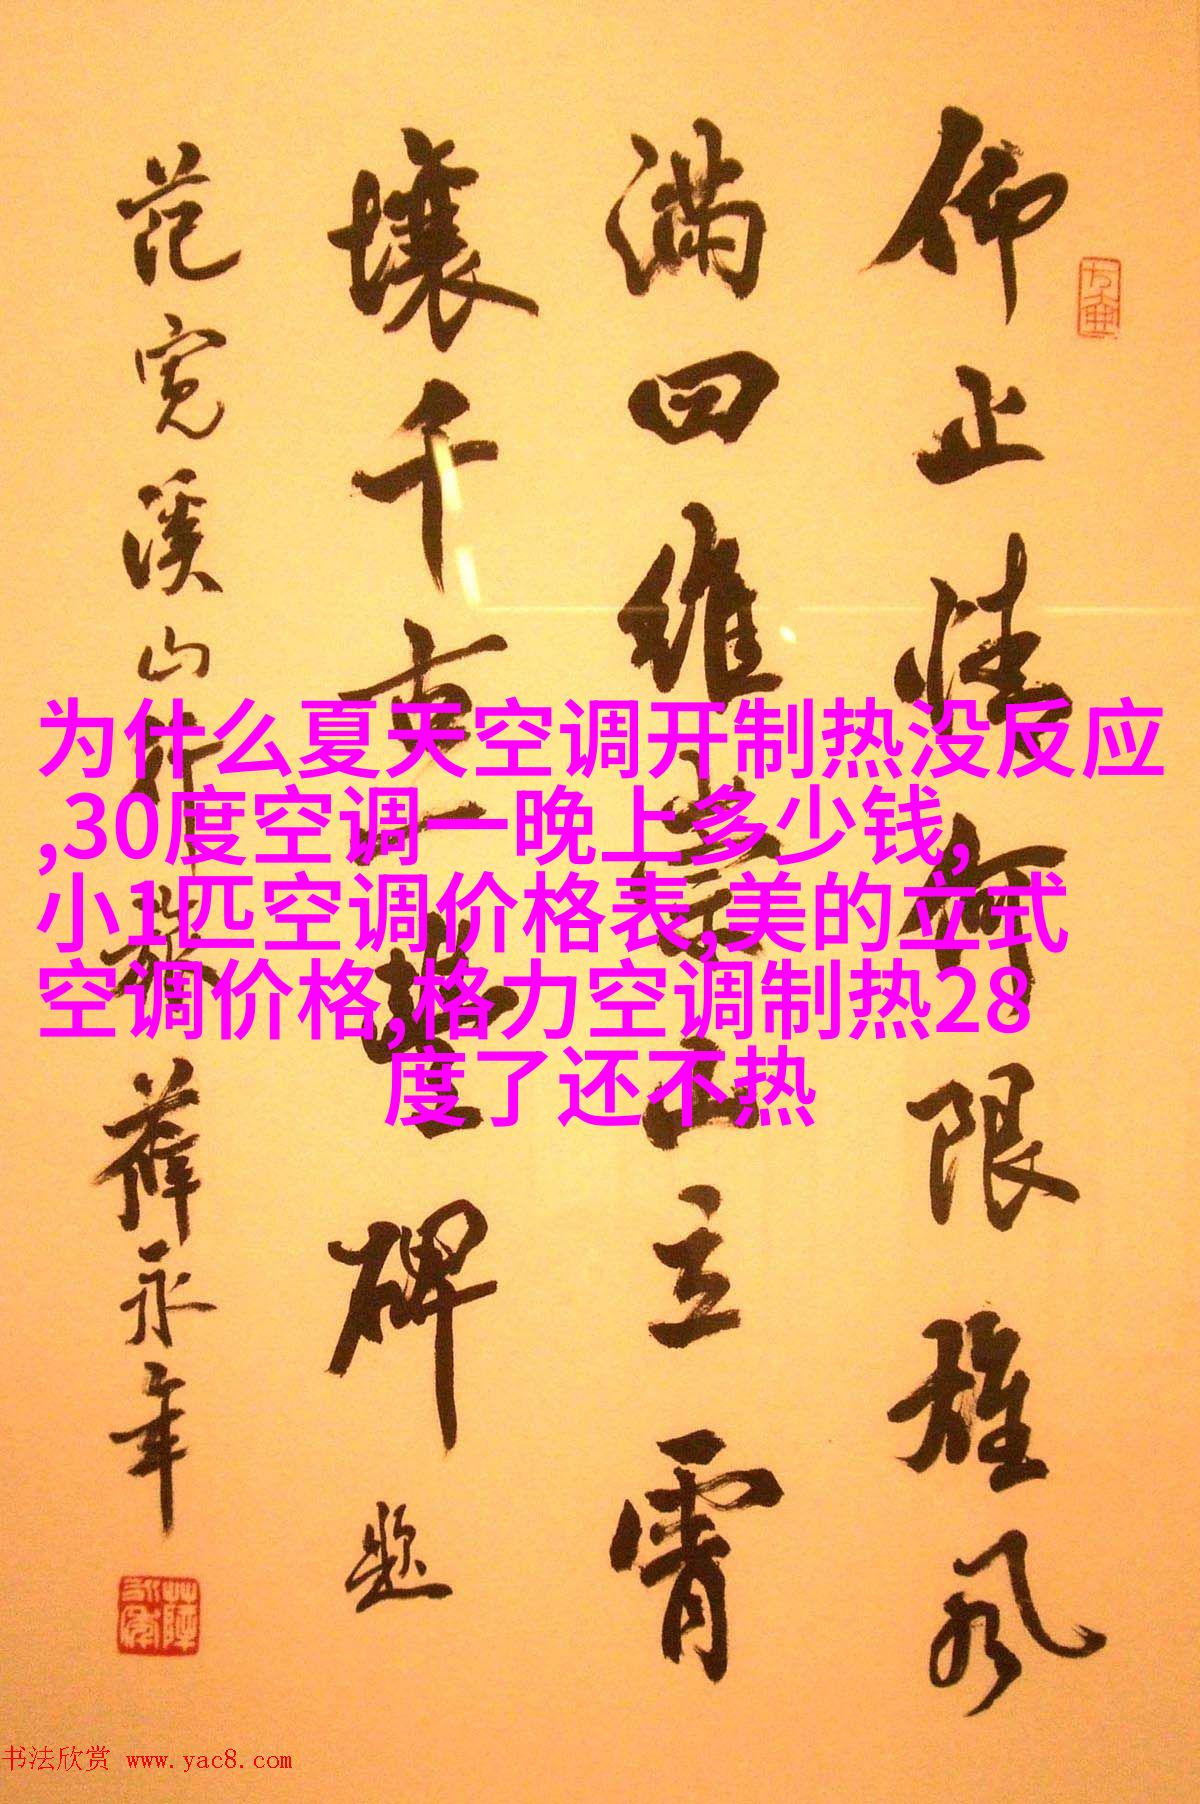 仰止情何限雄风
满四维崇山立霄
壤千
碑题
范宽溪山
薛永年
为什么夏天空调开制热没反应
,30度空调一晚上多少钱,
小1匹空调价格表,美的立式
空调价格,格力空调制热28
度了还不热
书法欣赏 www.yac8.com